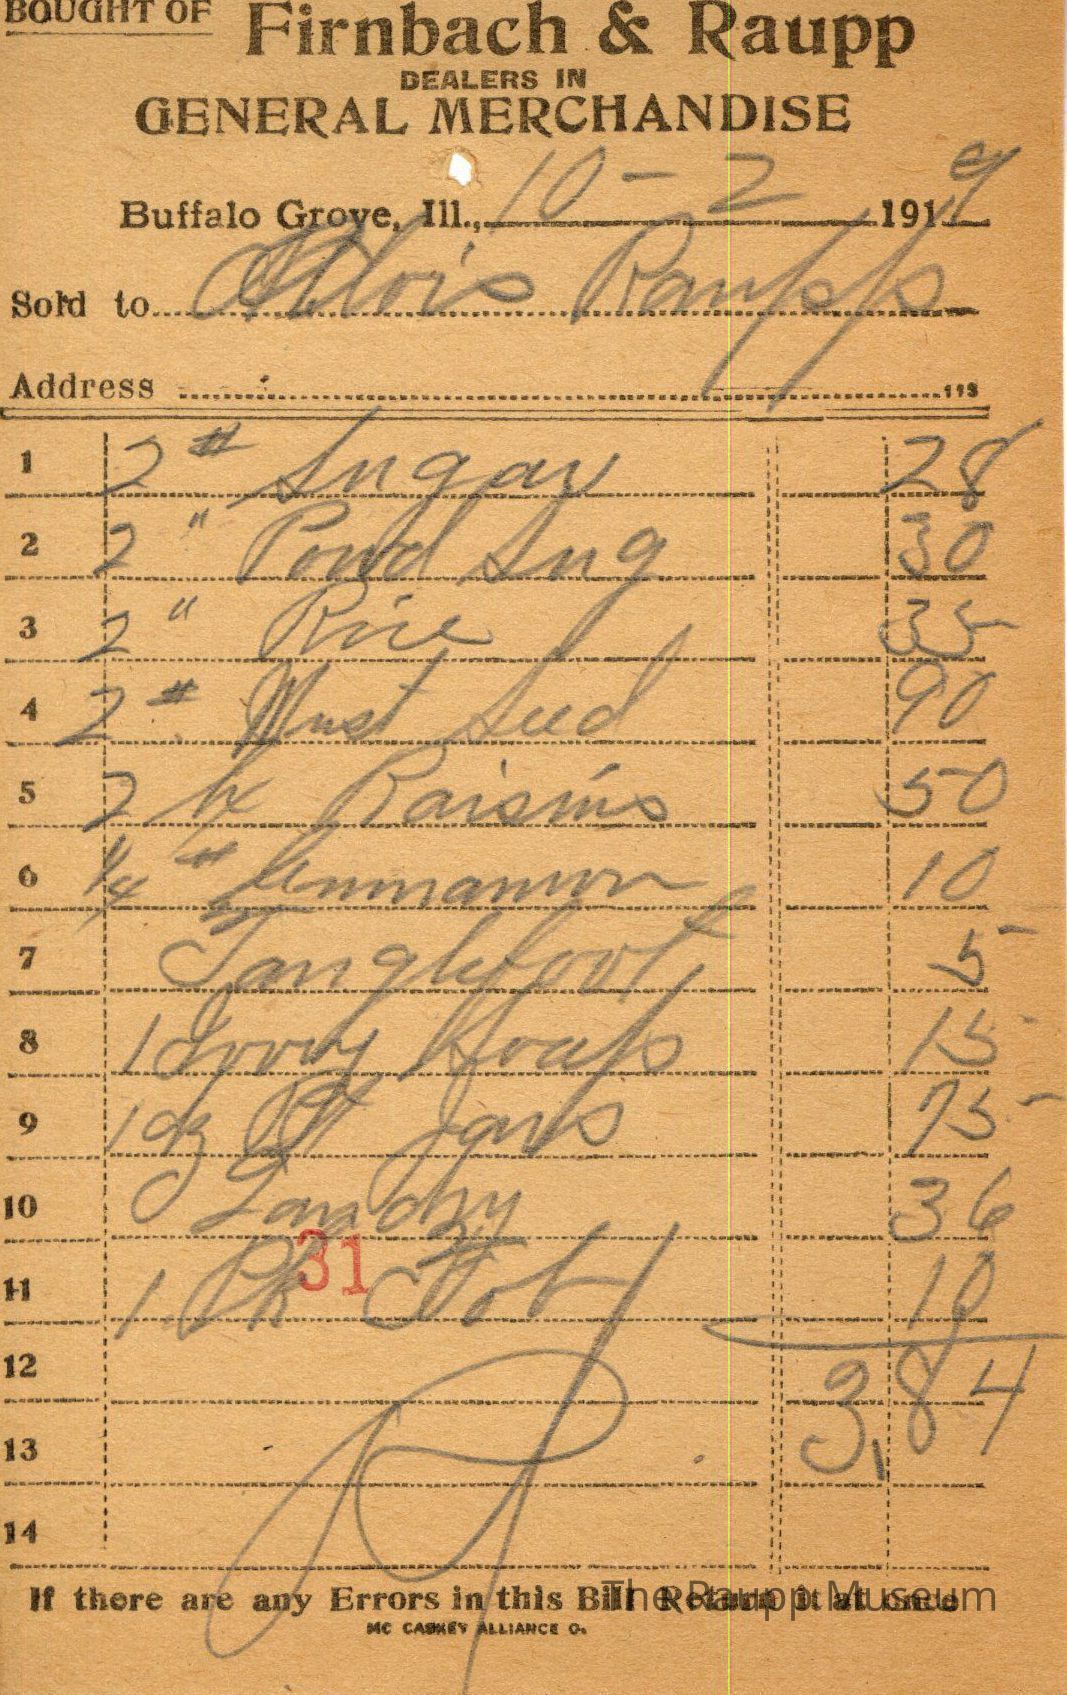 BOUGHT OF
Firnbach & Raupp
DEALERS IN
GENERAL MERCHANDISE
Buffalo Grove, Ill., 10 - 2 1919
Sold to Alois Raupp
Address
1 2 # Sugar 28
2 2 " Powd Sug 30
3 2 " Rice 35
4 2 # Must Seed 90
5 2 Raisins 50
6 1/4 # Cinnamon 10
7 Tanglefoot 5
8 1 Ivory Soap 15
9 1 dz Pt Jars 75
10 36
31
11 1 Pk Tob 10
12 3,84
13
14
If there are any Errors in this Bill Return it at once
The Raupp Museum
MC CASKEY ALLIANCE O.